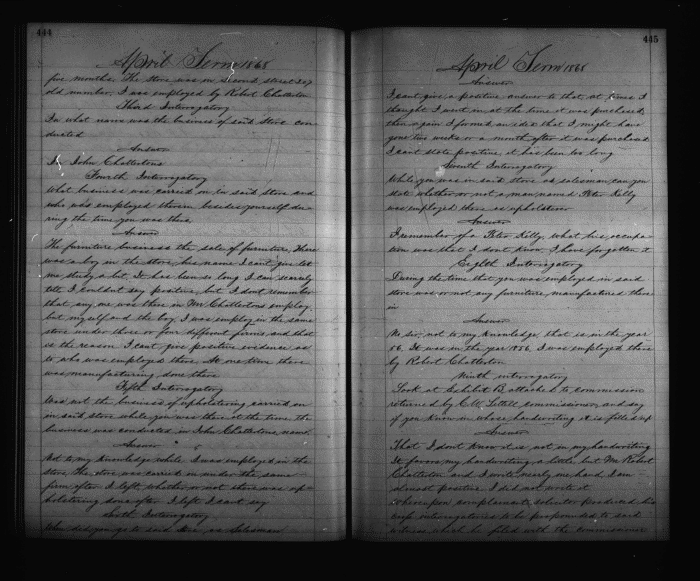 444
April Term 1868
five months. The store was in Second street 207
old number, I was employed by Robert Chatterton
Third Interrogatory
In what name was the business of said Store con
ducted
Answer
In John Chattertons
Fourth Interrogatory
What business was carried on in said Store and
who was employed therein besides yourself du
ring the time you was there
Answer
The furniture business the sale of furniture, There
was a boy in the store, his name I cant give let
me study a bit. It has been so long I can scarcely
tell, I couldnt say positive, but I dont remember
that any one was there in Mr Chattertons employ
but myself and the boy. I was employ in the same
store under three or four different firms and that
is the reason I cant give positive evidence as
to who was employed there. At one time there
was manufacturing done there
Fifth Interrogatory
Was not the business of upholstering carried on
in said store while you was there at the time the
business was conducted in John Chattertons name
Answer
Not to my knowledge while I was employed in the
store, the store was carried on under the same
firm after I left, whether or not there was up-
holstering done after I left I cant say
Sixth Interrogatory
When did you go to said store as Salesman
445
April Term 1868
Answer
I cant give a positive answer to that at times I
thought I went in at the time it was purchased,
then again I formed an idea that I might have
gone two weeks or a month after it was purchased
I cant state positive, it has been too long
Seventh Interrogatory
While you was in said store as salesman can you
state whether or not a man named Peter Kelly
was employed there as upholsterer
Answer
I remember of a Peter Kelly, what his occupa
tion was that I dont know, I have forgotten it
Eighth Interrogatory
During the time that you was employed in said
store was or not any furniture manufactured there
in
Answer
No sir, not to my knowledge, that is in the year
56. It was in the year 1856 I was employed there
by Robert Chatterton
Ninth interrogatory
Look at Exhibit B attached to commission
returned by C.W. Littell commissioner, and say
if you know in whose handwriting it is filled up
Answer
That I dont know it is not in my handwriting
It favors my handwriting a little, but Mr Robert
Chatterton and I write nearly one hand, I am
almost positive I did not write it
Whereupon complainants solicitor produced his
cross interrogatories to be propounded to said
witness which he filed with the commissioner